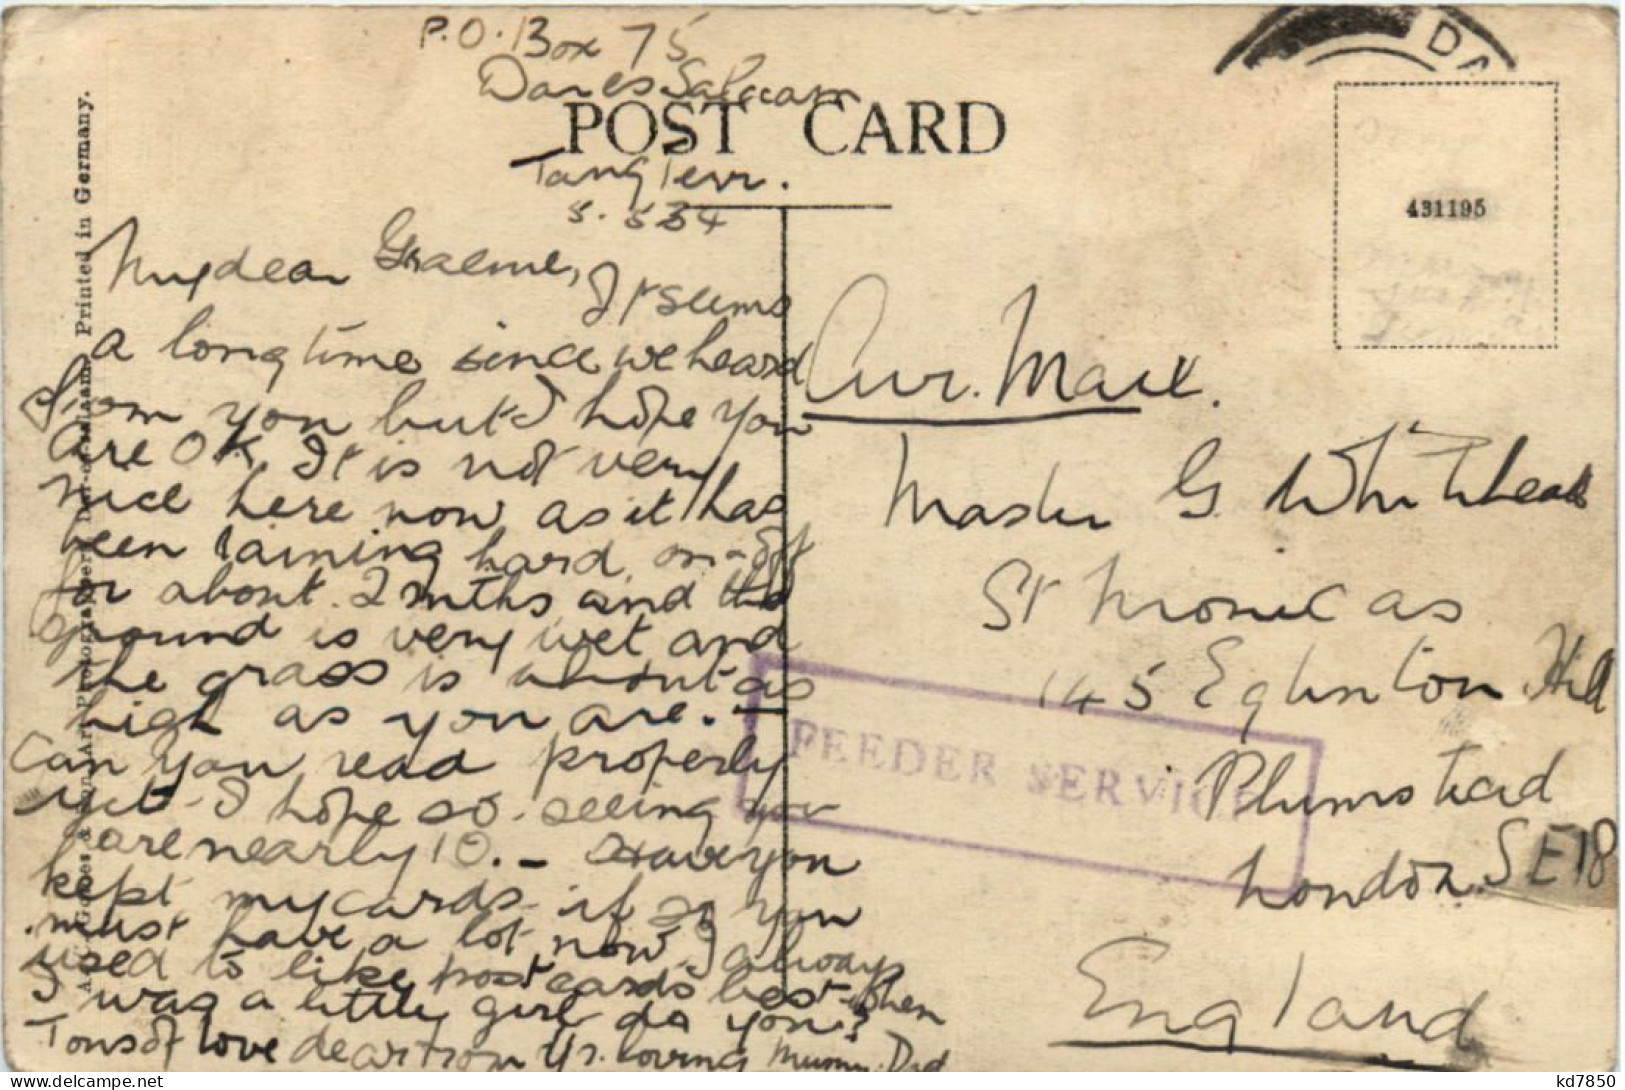 P.O. Box 75
Dar es Salaam
POST CARD
Tang Terr.
DA
431195
A. C. Gomes & Son, Art Photographers, Dar-es-Salaam. Printed in Germany.
My dear Graeme,
It seems
a long time since we heard
from you but I hope you
are OK. It is not very
nice here now as it has
been raining hard on & off
for about 2 mths and the
ground is very wet and
the grass is about as
high as you are. -
Can you read properly
yet - I hope so - seeing you
are nearly 10. - Have you
kept my cards - if so you
must have a lot now. I always
used to like postcards best when
I was a little girl do you?
Tons of love dear from Yr. loving Mummy. Dad
Air. Mail.
Master G. Whitehead
St Monicas
145 Eglinton Hill
FEEDER SERVICE
Plumstead
London. SE18
England
kd7850